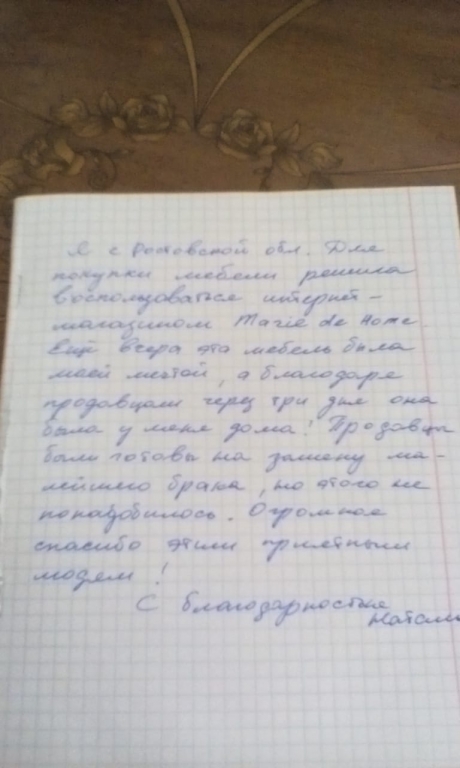 Я с Ростовской обл. Для
покупки мебели решила
воспользоваться интернет-
магазином Marie de Home.
Ещё вчера эта мебель была
моей мечтой, а благодаря
продавцам через три дня она
была у меня дома! Продавцы
были готовы на замену ма-
лейшего брака, но этого не
понадобилось. Огромное
спасибо этим приятным
людям!
С благодарностью